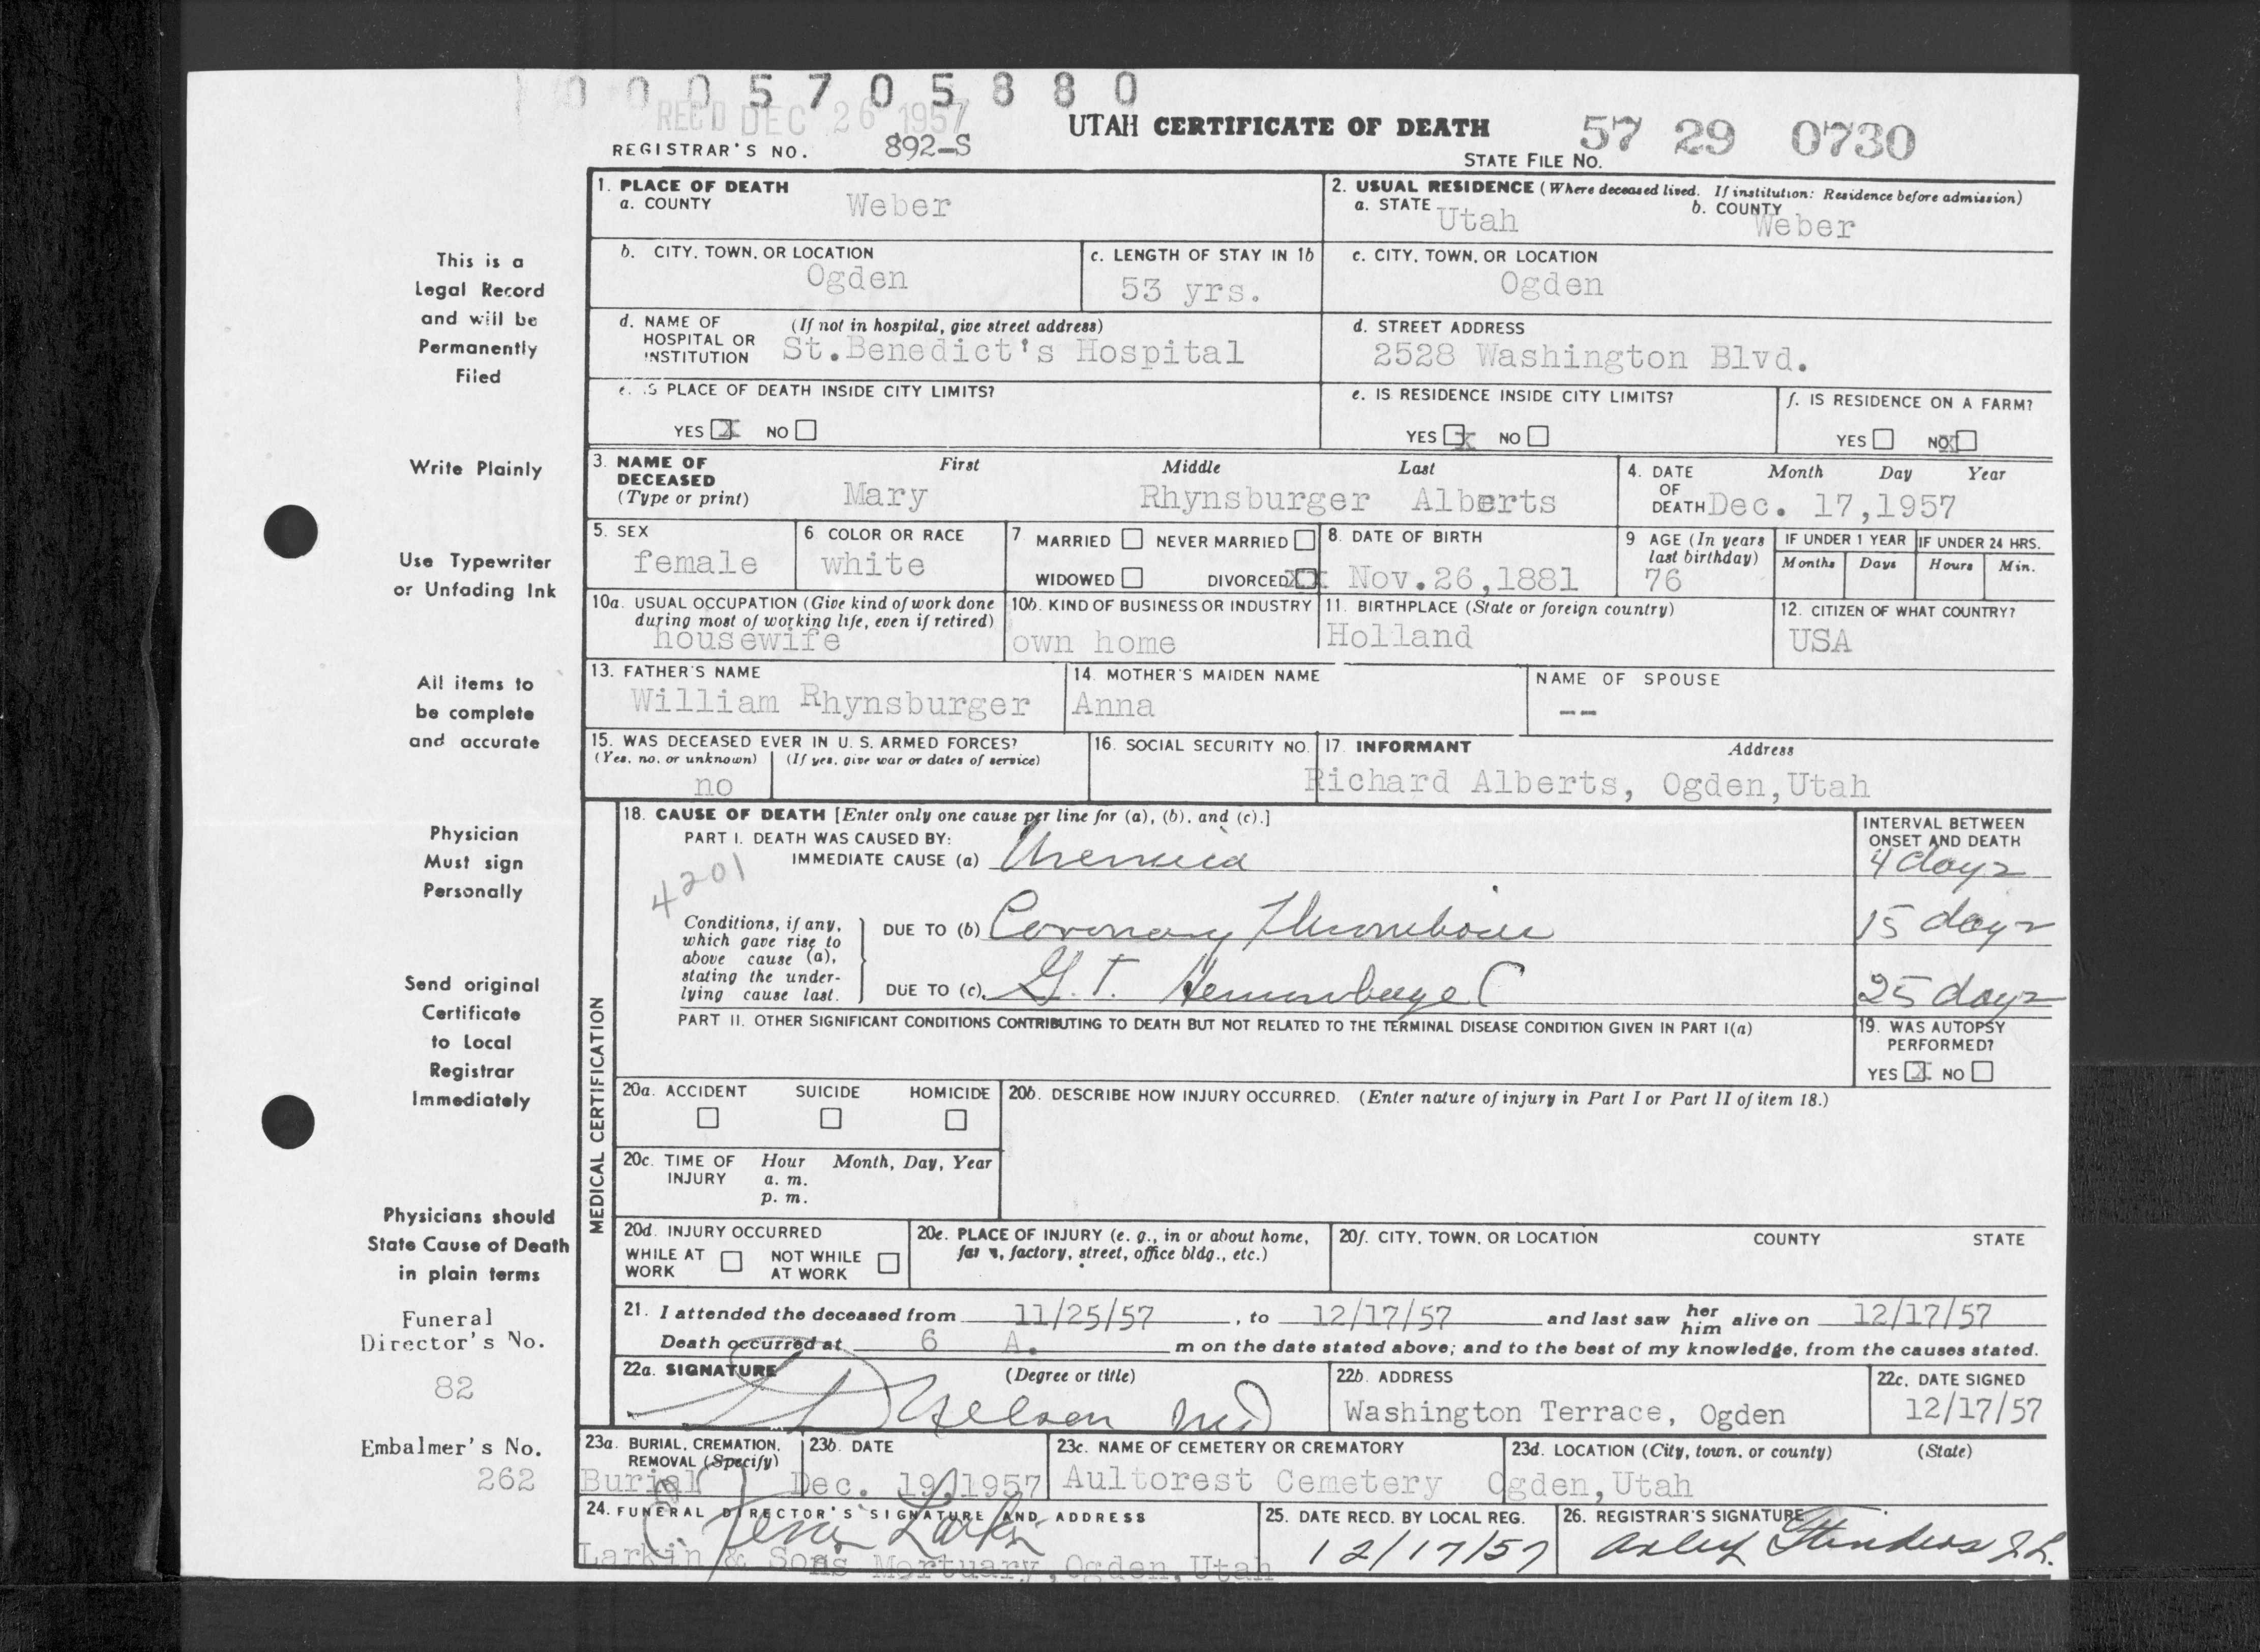 0005705880
REC'D DEC 26 1957
UTAH CERTIFICATE OF DEATH
57 29 0730
REGISTRAR'S NO. 892-S
STATE FILE NO.
1. PLACE OF DEATH
a. COUNTY Weber
2. USUAL RESIDENCE (Where deceased lived. If institution: Residence before admission)
a. STATE Utah b. COUNTY Weber
b. CITY, TOWN, OR LOCATION Ogden
c. LENGTH OF STAY IN 1b 53 yrs.
c. CITY, TOWN, OR LOCATION Ogden
d. NAME OF HOSPITAL OR INSTITUTION (If not in hospital, give street address) St.Benedict's Hospital
d. STREET ADDRESS 2528 Washington Blvd.
e. IS PLACE OF DEATH INSIDE CITY LIMITS?
YES X NO
e. IS RESIDENCE INSIDE CITY LIMITS?
YES X NO
f. IS RESIDENCE ON A FARM?
YES NO X
3. NAME OF DECEASED (Type or print)
First Middle Last
Mary Rhynsburger Alberts
4. DATE OF DEATH Month Day Year
Dec. 17,1957
5. SEX female
6 COLOR OR RACE white
7 MARRIED NEVER MARRIED
WIDOWED DIVORCED X
8. DATE OF BIRTH Nov.26,1881
9 AGE (In years last birthday) 76
IF UNDER 1 YEAR Months Days
IF UNDER 24 HRS. Hours Min.
10a. USUAL OCCUPATION (Give kind of work done during most of working life, even if retired) housewife
10b. KIND OF BUSINESS OR INDUSTRY own home
11. BIRTHPLACE (State or foreign country) Holland
12. CITIZEN OF WHAT COUNTRY? USA
13. FATHER'S NAME William Rhynsburger
14. MOTHER'S MAIDEN NAME Anna
NAME OF SPOUSE --
15. WAS DECEASED EVER IN U. S. ARMED FORCES?
(Yes, no, or unknown) (If yes, give war or dates of service)
no
16. SOCIAL SECURITY NO.
17. INFORMANT Address
Richard Alberts, Ogden,Utah
MEDICAL CERTIFICATION
18. CAUSE OF DEATH [Enter only one cause per line for (a), (b), and (c).]
INTERVAL BETWEEN ONSET AND DEATH
PART I. DEATH WAS CAUSED BY:
IMMEDIATE CAUSE (a) Uremia 4 days
4201
Conditions, if any, which gave rise to above cause (a), stating the underlying cause last.
DUE TO (b) Coronary Thrombosis 15 days
DUE TO (c) G.I. Hemorrhage 25 days
PART II. OTHER SIGNIFICANT CONDITIONS CONTRIBUTING TO DEATH BUT NOT RELATED TO THE TERMINAL DISEASE CONDITION GIVEN IN PART I(a)
19. WAS AUTOPSY PERFORMED?
YES X NO
20a. ACCIDENT SUICIDE HOMICIDE
20b. DESCRIBE HOW INJURY OCCURRED. (Enter nature of injury in Part I or Part II of item 18.)
20c. TIME OF INJURY Hour Month, Day, Year
a. m.
p. m.
20d. INJURY OCCURRED
WHILE AT WORK NOT WHILE AT WORK
20e. PLACE OF INJURY (e. g., in or about home, farm, factory, street, office bldg., etc.)
20f. CITY, TOWN, OR LOCATION COUNTY STATE
21. I attended the deceased from 11/25/57, to 12/17/57 and last saw her him alive on 12/17/57
Death occurred at 6 A. m on the date stated above; and to the best of my knowledge, from the causes stated.
22a. SIGNATURE (Degree or title)
Nelson MD
22b. ADDRESS Washington Terrace, Ogden
22c. DATE SIGNED 12/17/57
23a. BURIAL, CREMATION, REMOVAL (Specify) Burial
23b. DATE Dec. 19,1957
23c. NAME OF CEMETERY OR CREMATORY Aultorest Cemetery
23d. LOCATION (City, town, or county) (State)
Ogden,Utah
24. FUNERAL DIRECTOR'S SIGNATURE AND ADDRESS
Larkin
Larkin & Sons Mortuary,Ogden,Utah
25. DATE RECD. BY LOCAL REG. 12/17/57
26. REGISTRAR'S SIGNATURE
This is a
Legal Record
and will be
Permanently
Filed
Write Plainly
Use Typewriter
or Unfading Ink
All items to
be complete
and accurate
Physician
Must sign
Personally
Send original
Certificate
to Local
Registrar
Immediately
Physicians should
State Cause of Death
in plain terms
Funeral
Director's No.
82
Embalmer's No.
262